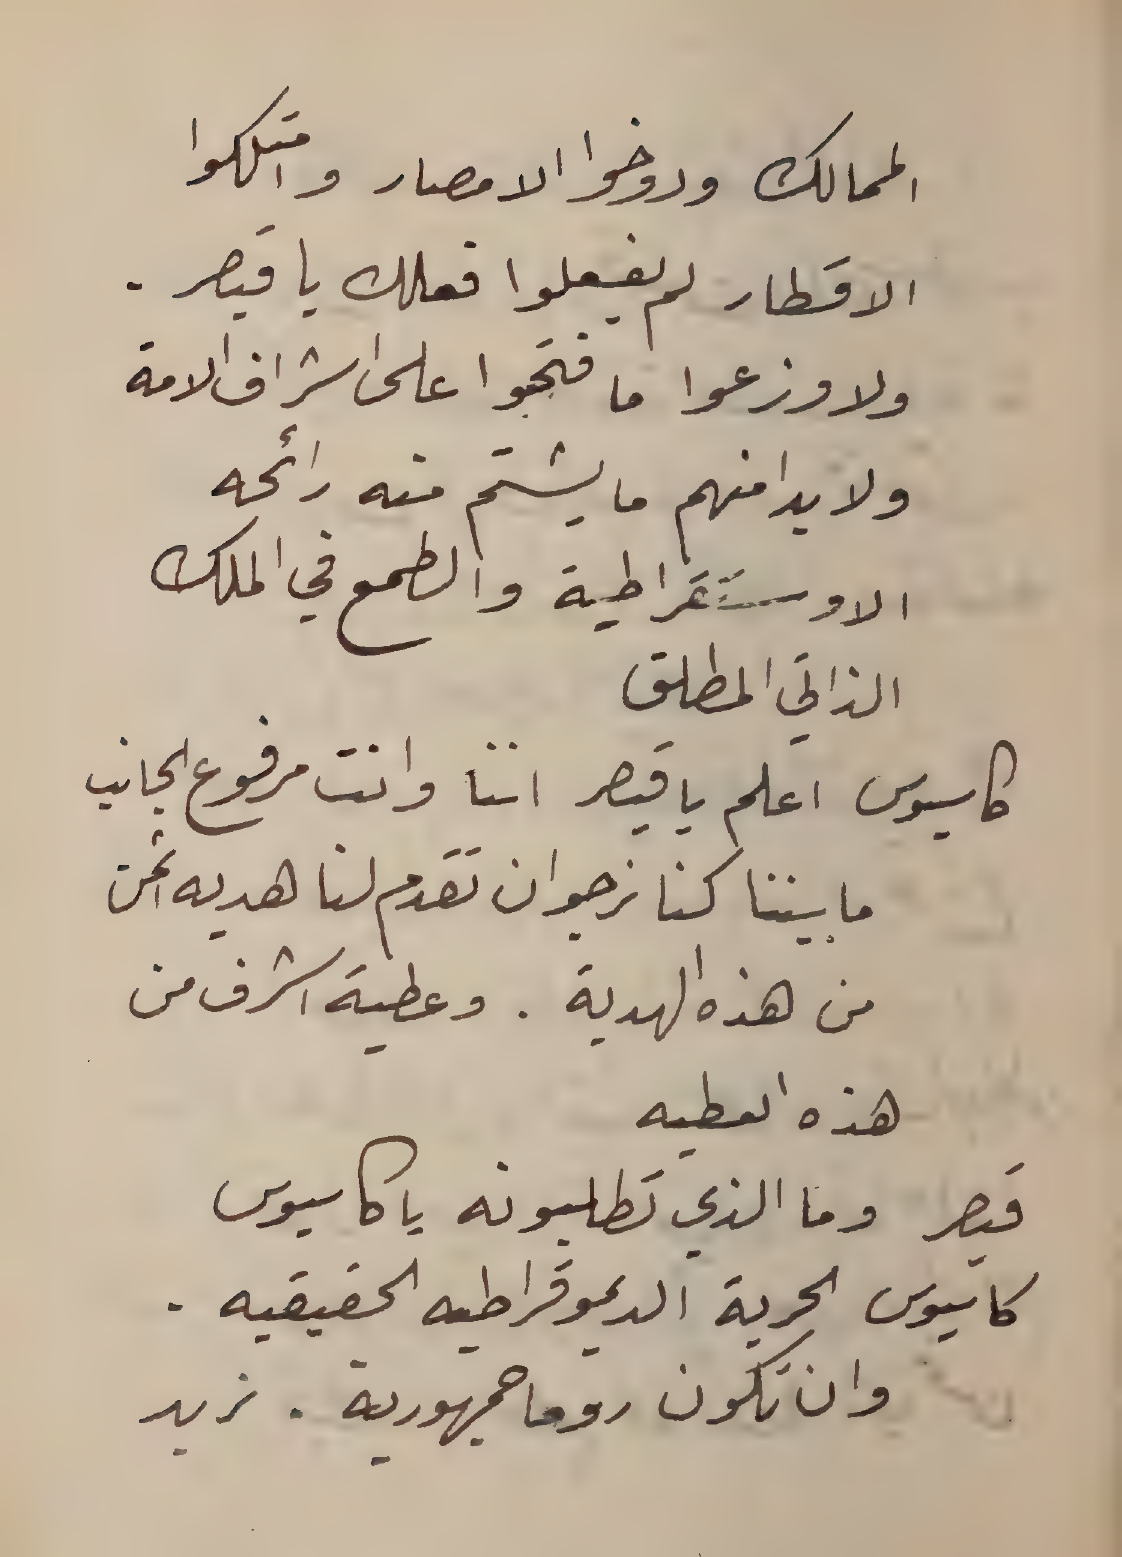 الممالك ودوخوا الامصار وامتلكوا
الاقطار لم يفعلوا فعلك يا قيصر .
ولا وزعوا ما فتحوا على اشراف الامة
ولا بدا منهم ما يشتم منه رائحه
الاوستقراطية والطمع في الملك
الذاتي المطلق
كاسيوس اعلم يا قيصر اننا وانت مرفوع الجانب
ما بيننا كنا نرجو ان تقدم لنا هديه اثمن
من هذه الهدية . وعطية اشرف من
هذه العطيه
قيصر وما الذي تطلبونه يا كاسيوس
كاسيوس الحرية الديموقراطيه الحقيقيه .
وان تكون روما جمهورية . نريد